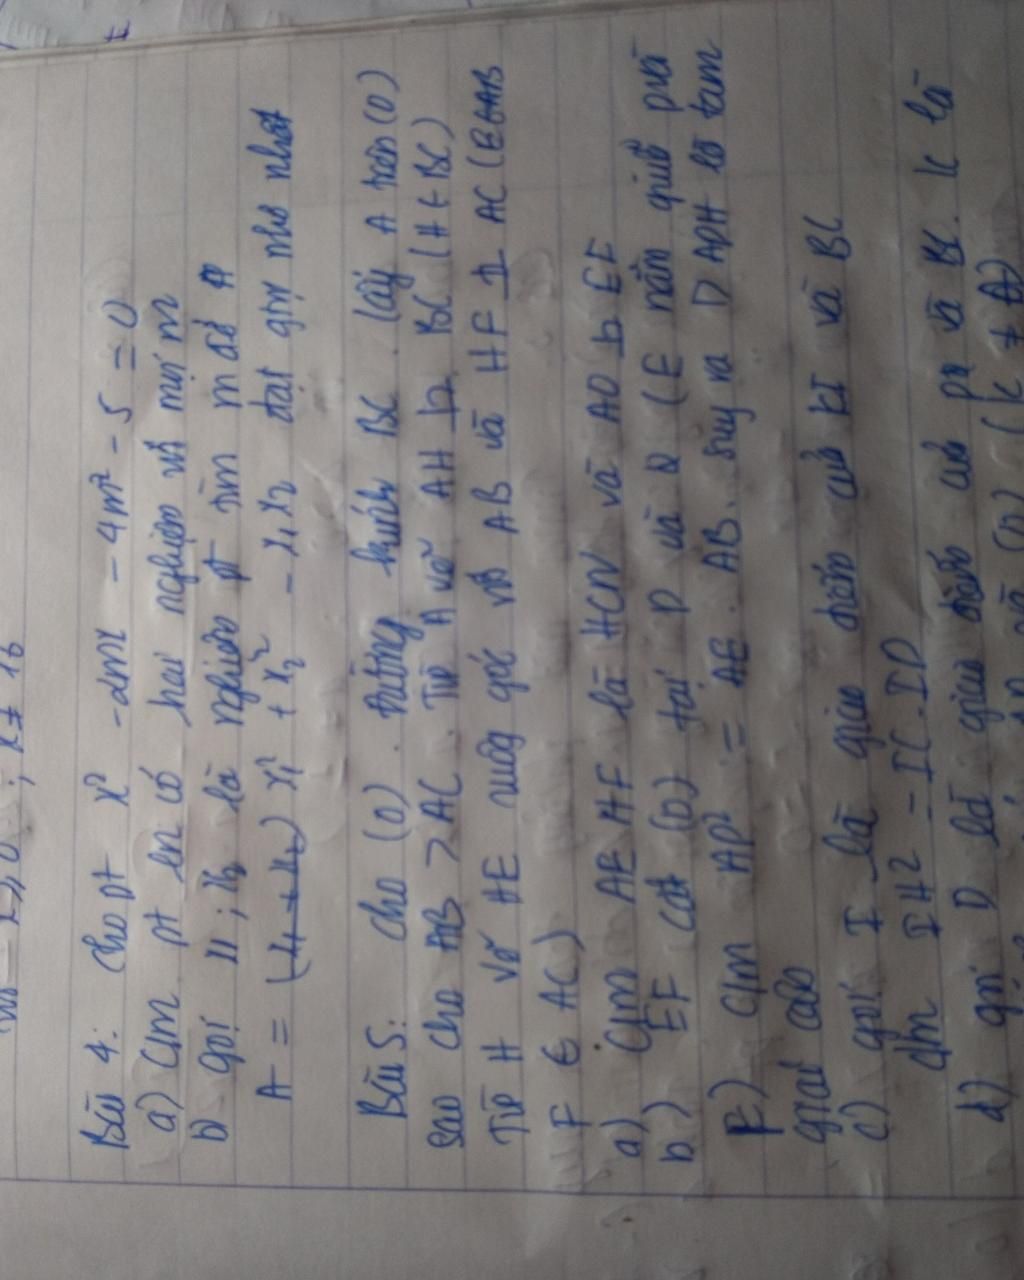 x ≠ 16
Bài 4: cho pt x² -2mx - 4m² - 5 = 0
a) C/m pt ln có hai nghiệm với mọi m
b) gọi x1; x2 là nghiệm pt tìm m để A
A = x1² + x2² - x1x2 đạt gtrị nhỏ nhất
Bài 5: cho (O). Đường kính BC. lấy A trên (O)
sao cho AB > AC. Từ A vẽ AH ⊥ BC (H ∈ BC)
Từ H vẽ HE vuông góc với AB và HF ⊥ AC (E∈AB
F ∈ AC)
a) C/m AEHF là HCN và AO ⊥ EF
b) EF cắt (O) tại P và Q (E nằm giữa P và
F) C/m AP² = AE. AB. suy ra D APH là tam
giác cân
c) gọi I là giao điểm của KI và BC
c/m IH² = IC.ID
d) gọi D là giao điểm của PQ và BC. K là
(K ≠ A)